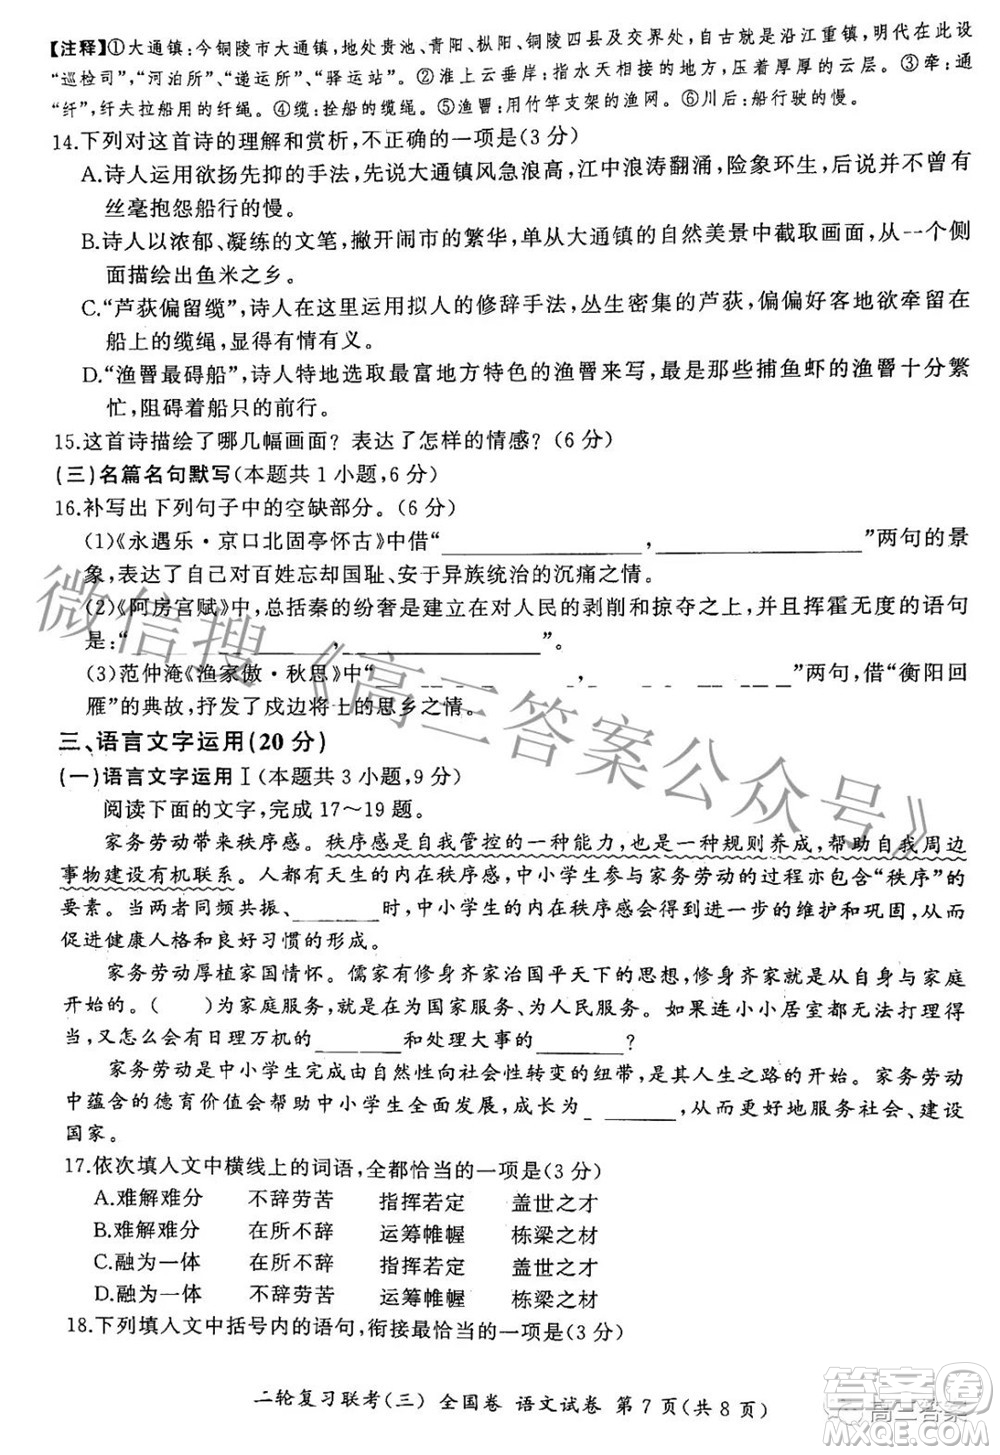 【注释】①大通镇:今铜陵市大通镇,地处贵池、青阳、枞阳、铜陵四县及交界处,自古就是沿江重镇,明代在此设
“巡检司”,“河泊所”、“递运所”、“驿运站”。②淮上云垂岸:指水天相连,岸边压着厚厚的云层。③牵:通
“纤”,纤夫拉船用的纤绳。④缆:拴船的缆绳。⑤渔罾:用竹竿支架的渔网。⑥川后:船行驶的慢。
14.下列对这首诗的理解和赏析,不正确的一项是(3分)
A.诗人运用欲扬先抑的手法,先说大通镇风急浪高,江中浪涛翻涌,险象环生,后说没有
丝毫抱怨船行的慢。
B.诗人以浓郁、凝练的文笔,撇开闹市的繁华,单从大通镇的自然美景中截取画面,从一个侧
面描绘出鱼米之乡。
C.“芦荻偏留缆”,诗人在这里运用拟人的修辞手法,丛生密集的芦荻,偏偏好客地欲牵留在
船上的缆绳,显得有情有义。
D.“渔罾最碍船”,诗人特地选取最富地方特色的渔罾来写,最是那些捕鱼虾的渔罾十分繁
忙,阻碍着船只的前行。
15.这首诗描绘了哪几幅画面?表达了怎样的情感?(6分)
(三)名篇名句默写(本题共1小题,6分)
16.补写出下列句子中的空缺部分。(6分)
(1)《永遇乐·京口北固亭怀古》中借“____________,____________”两句的景
象,表达了自己对百姓忘却国耻、安于异族统治的沉痛之情。
(2)《阿房宫赋》中,总括秦的纷奢是建立在对人民的剥削和掠夺之上,并且挥霍无度的语句
是:“____________,____________”。
(3)范仲淹《渔家傲·秋思》中“____________,____________”两句,借“衡阳回
雁”的典故,抒发了戍边将士的思乡之情。
三、语言文字运用(20分)
(一)语言文字运用Ⅰ(本题共3小题,9分)
阅读下面的文字,完成17~19题。
家务劳动带来秩序感。秩序感是自我管控的一种能力,也是一种规则养成,帮助自我周边
事物建设有机联系。人都有天生的内在秩序感,中小学生参与家务劳动的过程亦包含“秩序”的
要素。当两者同频共振、______时,中小学生的内在秩序感会得到进一步的维护和巩固,从而
促进健康人格和良好习惯的形成。
家务劳动厚植家国情怀。儒家有修身齐家治国平天下的思想,家务劳动是从自身与家庭
开始的。(  )为家庭服务,为国家服务、为人民服务。如果连小小居室都无法打理得
当,又怎么会有日理万机的______和处理大事的______?
家务劳动是中小学生完成由自然性向社会性转变的纽带,是其人生之路的开始。家务劳
动中蕴含的德育价值会帮助中小学生全面发展、健康成长为______,从而更好地服务社会、建设
国家。
17.依次填入文中横线上的词语,全都恰当的一项是(3分)
A.难解难分 不辞劳苦 指挥若定 盖世之才
B.难解难分 在所不辞 运筹帷幄 栋梁之材
C.融为一体 在所不辞 指挥若定 盖世之才
D.融为一体 不辞劳苦 运筹帷幄 栋梁之材
18.下列填入文中括号内的语句,衔接最恰当的一项是(3分)
二轮复习联考(三) 全国卷 语文试卷 第7页(共8页)
微信搜《高三答案公众号》
高三答案